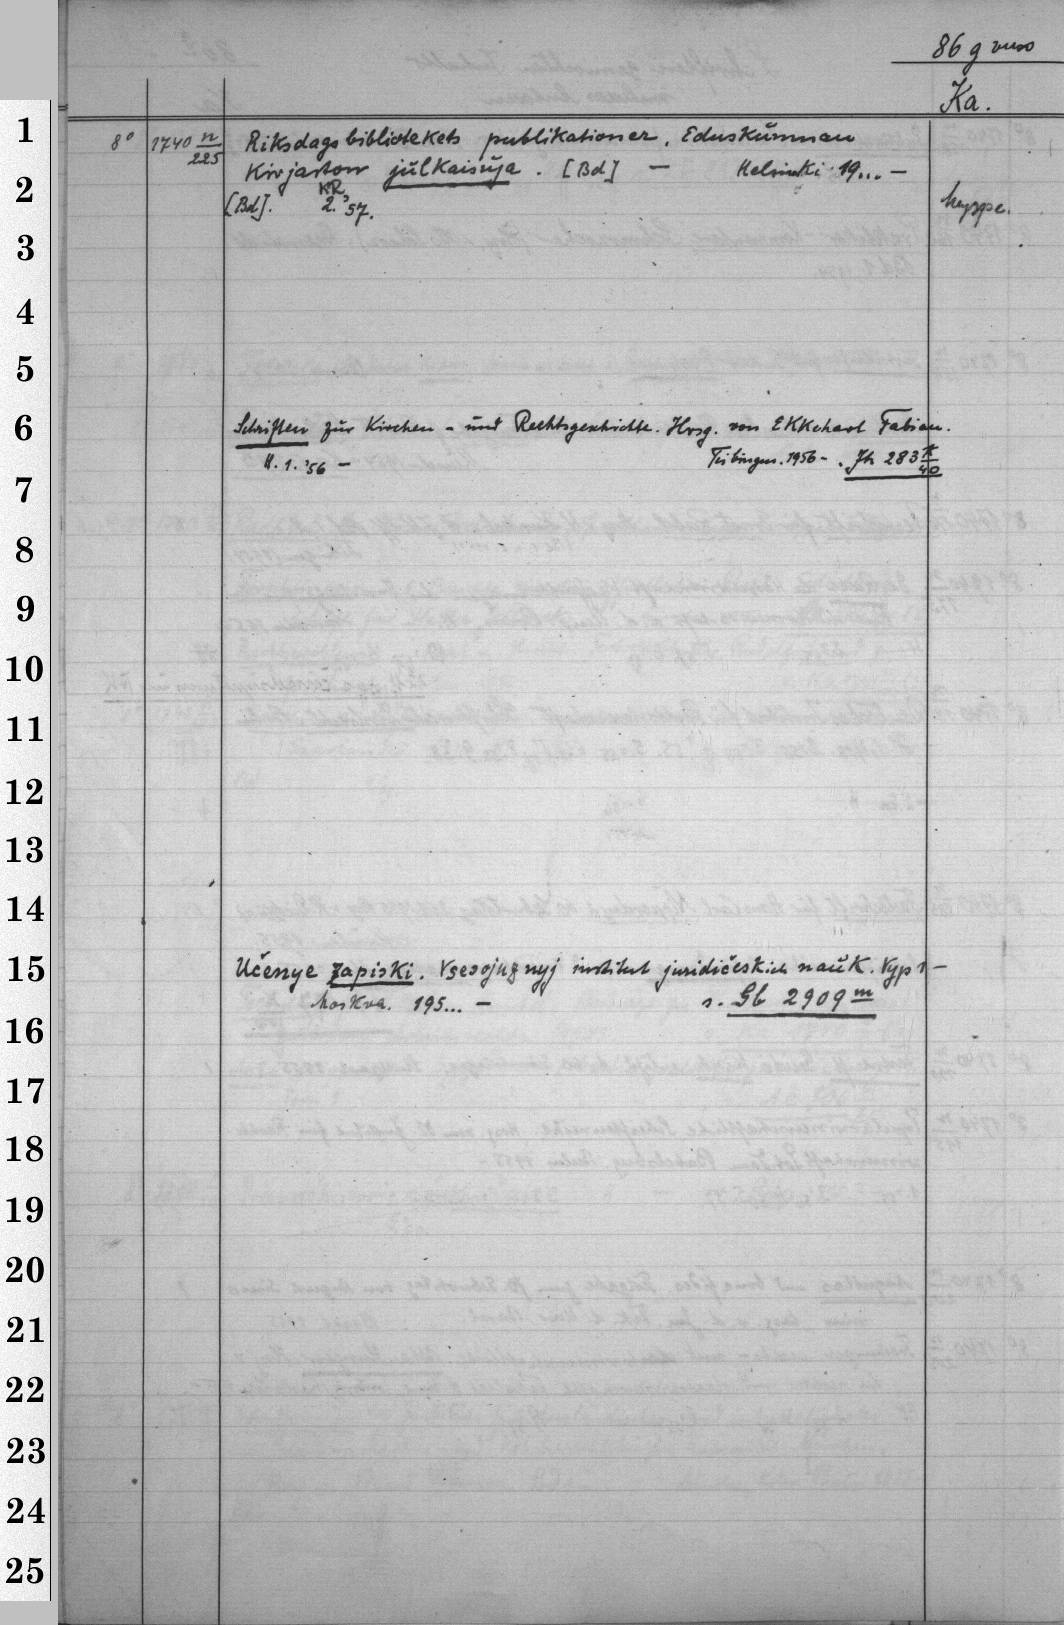 86 g vuso
Ka.
1
8° 1740 n/225 Riksdagsbibliotekets publikationer. Eduskunnan
2
Kirjaston julkaisuja. [Bd] — Helsinki 19... —
KR
[Bd]. 2. '57.
3
4
5
6
Schriften zur Kirchen- und Rechtsgeschichte. Hrsg. von Ekkehart Fabian.
H. 1. '56 — Tübingen. 1956 - . Jh 283 k/40
7
8
9
10
11
12
13
14
15
Učenye zapiski. Vsesojuznyj institut juridičeskich nauk. Vyp 1 —
Moskva. 195... — s. Gb 2909 m
16
17
18
19
20
21
22
23
24
25